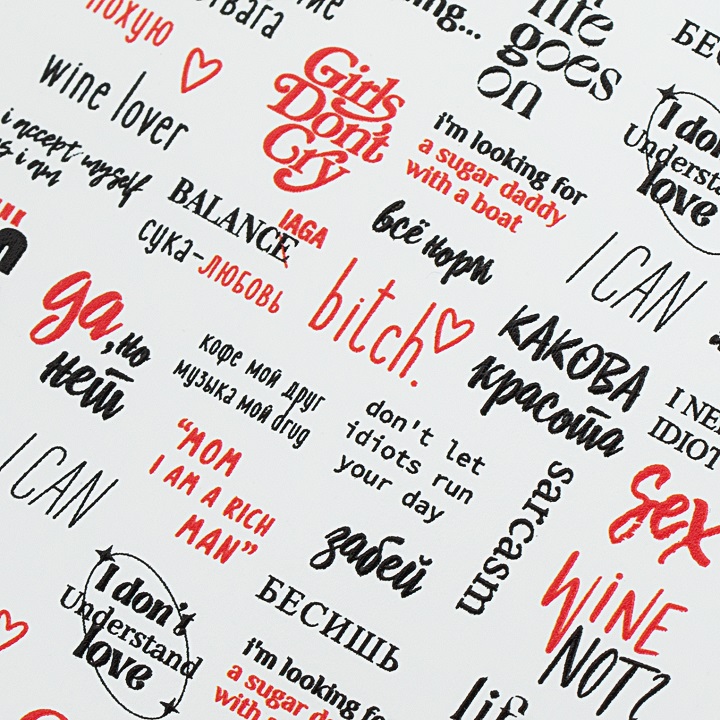 похую
wine lover
i accept myself
as i am
Girls
Don't
Cry
life
goes
on
i'm looking for
a sugar daddy
with a boat
I don't
Understand
love
BALANCE
IAGA
сука-любовь
всё норм
I CAN
bitch.
да, но
нет
кофе мой друг
музыка мой drug
КАКОВА
красота
don't let
idiots run
your day
I CAN
"MOM
I AM A RICH
MAN"
забей
sarcasm
sex
WINE
NOT?
I don't
Understand
love
БЕСИШЬ
i'm looking for
a sugar daddy
with a